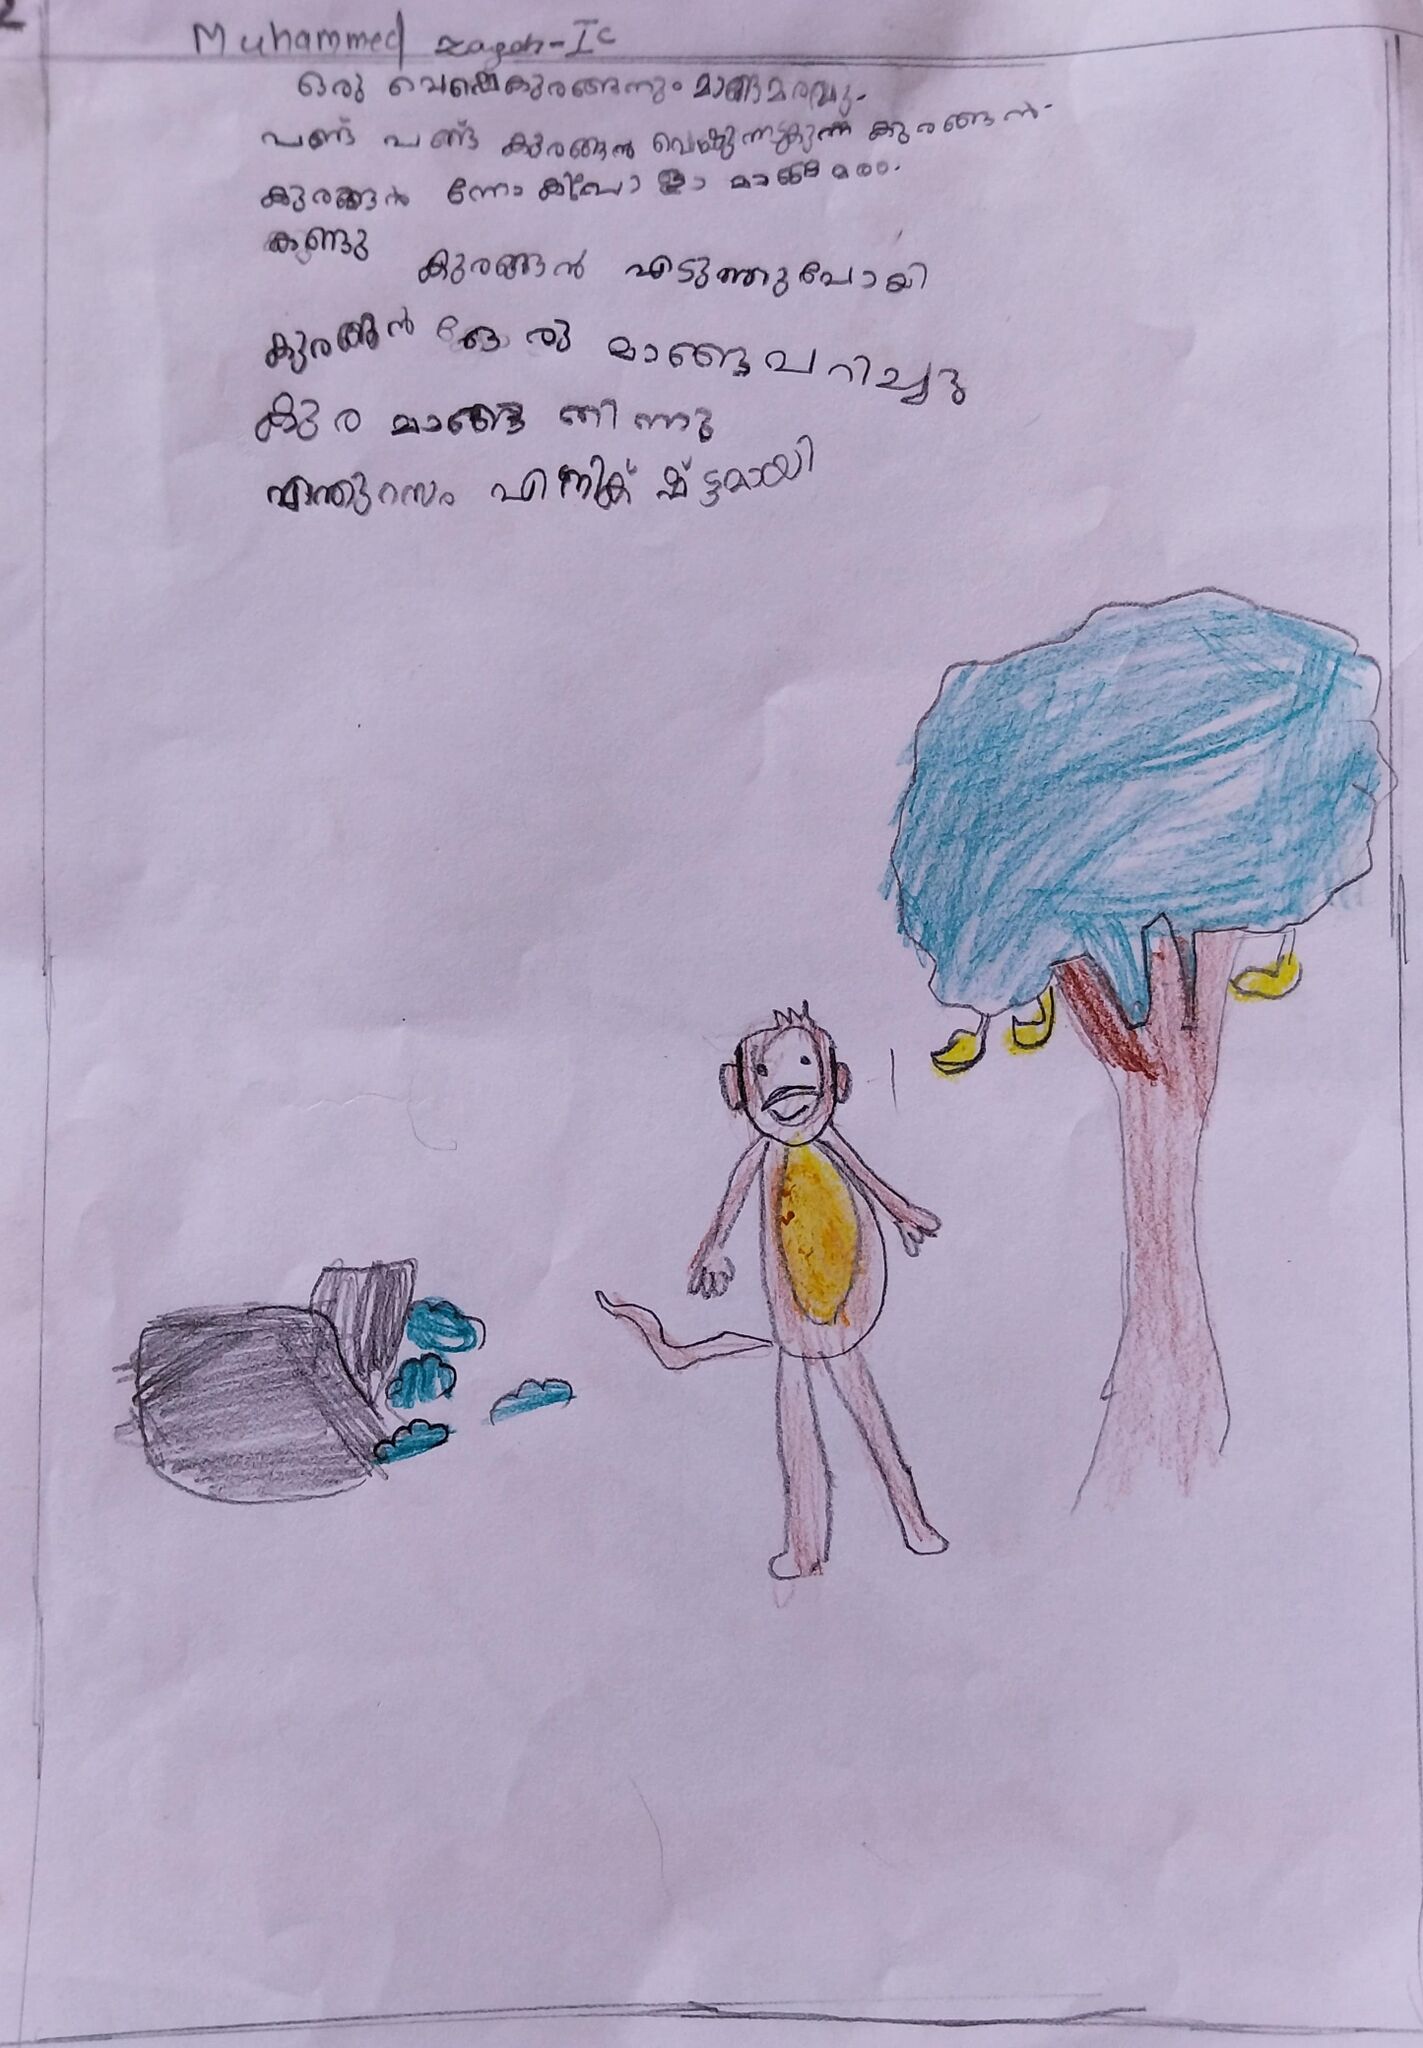 2
Muhammed - Ic
ഒരു കുരങ്ങനും മാങ്ങമരവും.
പണ്ട് പണ്ട് കുരങ്ങൻ കുരങ്ങൻ.
കുരങ്ങൻ മാങ്ങമരം.
കണ്ടു
കുരങ്ങൻ എടുത്തുപോയി
കുരങ്ങൻ ഒരു മാങ്ങപറിച്ചു
കുര മാങ്ങ തിന്നു
എന്തുരസം എനിക് ഷ്ട്ടമായി